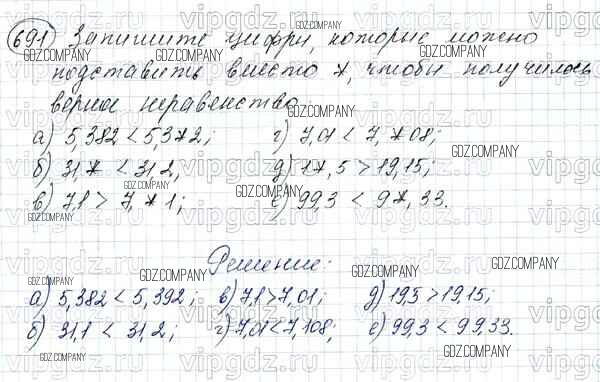 691 Запишите цифры, которые можно
подставить вместо *, чтобы получилось
верное неравенство
а) 5,382 < 5,3*2; г) 7,01 < 7,*08;
б) 31,* < 31,2; д) 1*,5 > 19,15;
в) 7,1 > 7,*1; е) 99,3 < 9*,33.
Решение:
а) 5,382 < 5,392; в) 7,1 > 7,01; д) 19,5 > 19,15;
б) 31,1 < 31,2; г) 7,01 < 7,108; е) 99,3 < 99,33.